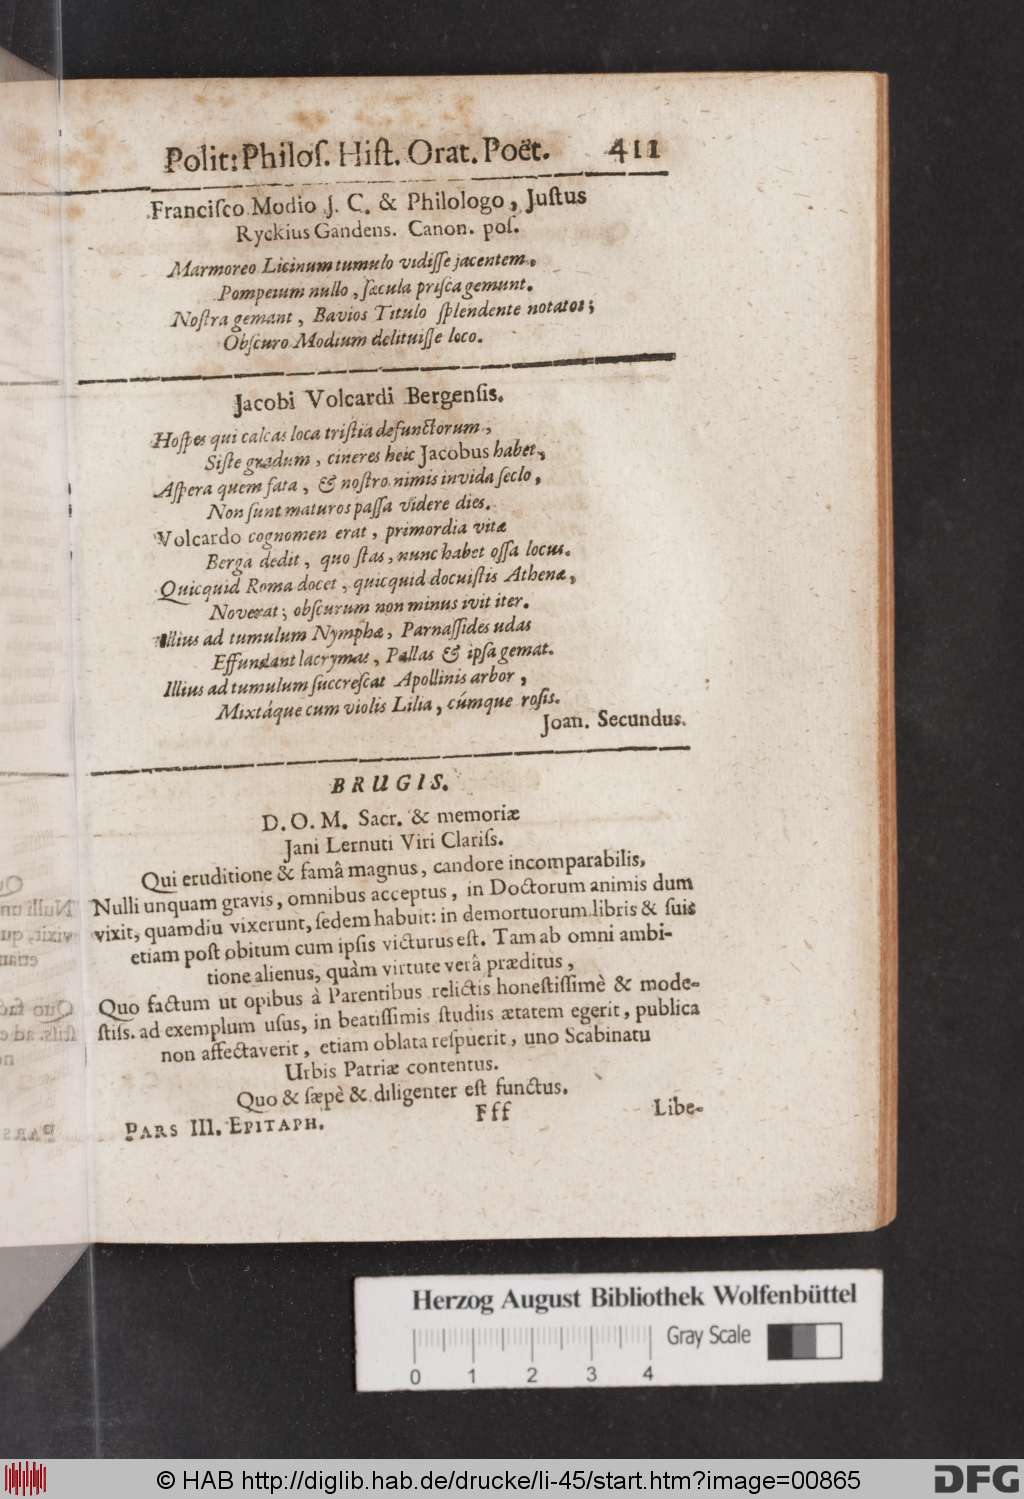 Polit: Philoſ. Hiſt. Orat. Poët. 411
Franciſco Modio J. C. & Philologo, Juſtus
Ryckius Gandens. Canon. poſ.
Marmoreo Licinum tumulo vidiſſe jacentem,
Pompeium nullo, ſæcula priſca gemunt.
Noſtra gemant, Bavios Titulo ſplendente notatos;
Obſcuro Modium delituiſſe loco.
Jacobi Volcardi Bergenſis.
Hoſpes qui calcas loca triſtia defunctorum,
Siſte gradum, cineres heic Jacobus habet,
Aſpera quem fata, & noſtro nimis invida ſeclo,
Non ſunt maturos paſſa videre dies.
Volcardo cognomen erat, primordia vitæ
Berga dedit, quo ſtas, nunc habet oſſa locus.
Quicquid Roma docet, quicquid docuiſtis Athenæ,
Noverat; obſcurum non minus ivit iter.
Illius ad tumulum Nymphæ, Parnaſſides udas
Effundant lacrymas, Pallas & ipſa gemat.
Illius ad tumulum ſuccreſcat Apollinis arbor,
Mixtáque cum violis Lilia, cúmque roſis.
Joan. Secundus.
BRUGIS.
D. O. M. Sacr. & memoriæ
Jani Lernuti Viri Clariſs.
Qui eruditione & famâ magnus, candore incomparabilis,
Nulli unquam gravis, omnibus acceptus, in Doctorum animis dum
vixit, quamdiu vixerunt, ſedem habuit: in demortuorum libris & ſuis
etiam poſt obitum cum ipſis victurus eſt. Tam ab omni ambi-
tione alienus, quàm virtute verâ præditus,
Quo factum ut opibus à Parentibus relictis honeſtiſſimè & mode-
ſtiſs. ad exemplum uſus, in beatiſſimis ſtudiis ætatem egerit, publica
non affectaverit, etiam oblata reſpuerit, uno Scabinatu
Urbis Patriæ contentus.
Quo & ſæpè & diligenter eſt functus.
PARS III. EPITAPH. Fff Libe-
Herzog August Bibliothek Wolfenbüttel
Gray Scale
0 1 2 3 4
© HAB http://diglib.hab.de/drucke/li-45/start.htm?image=00865
DFG